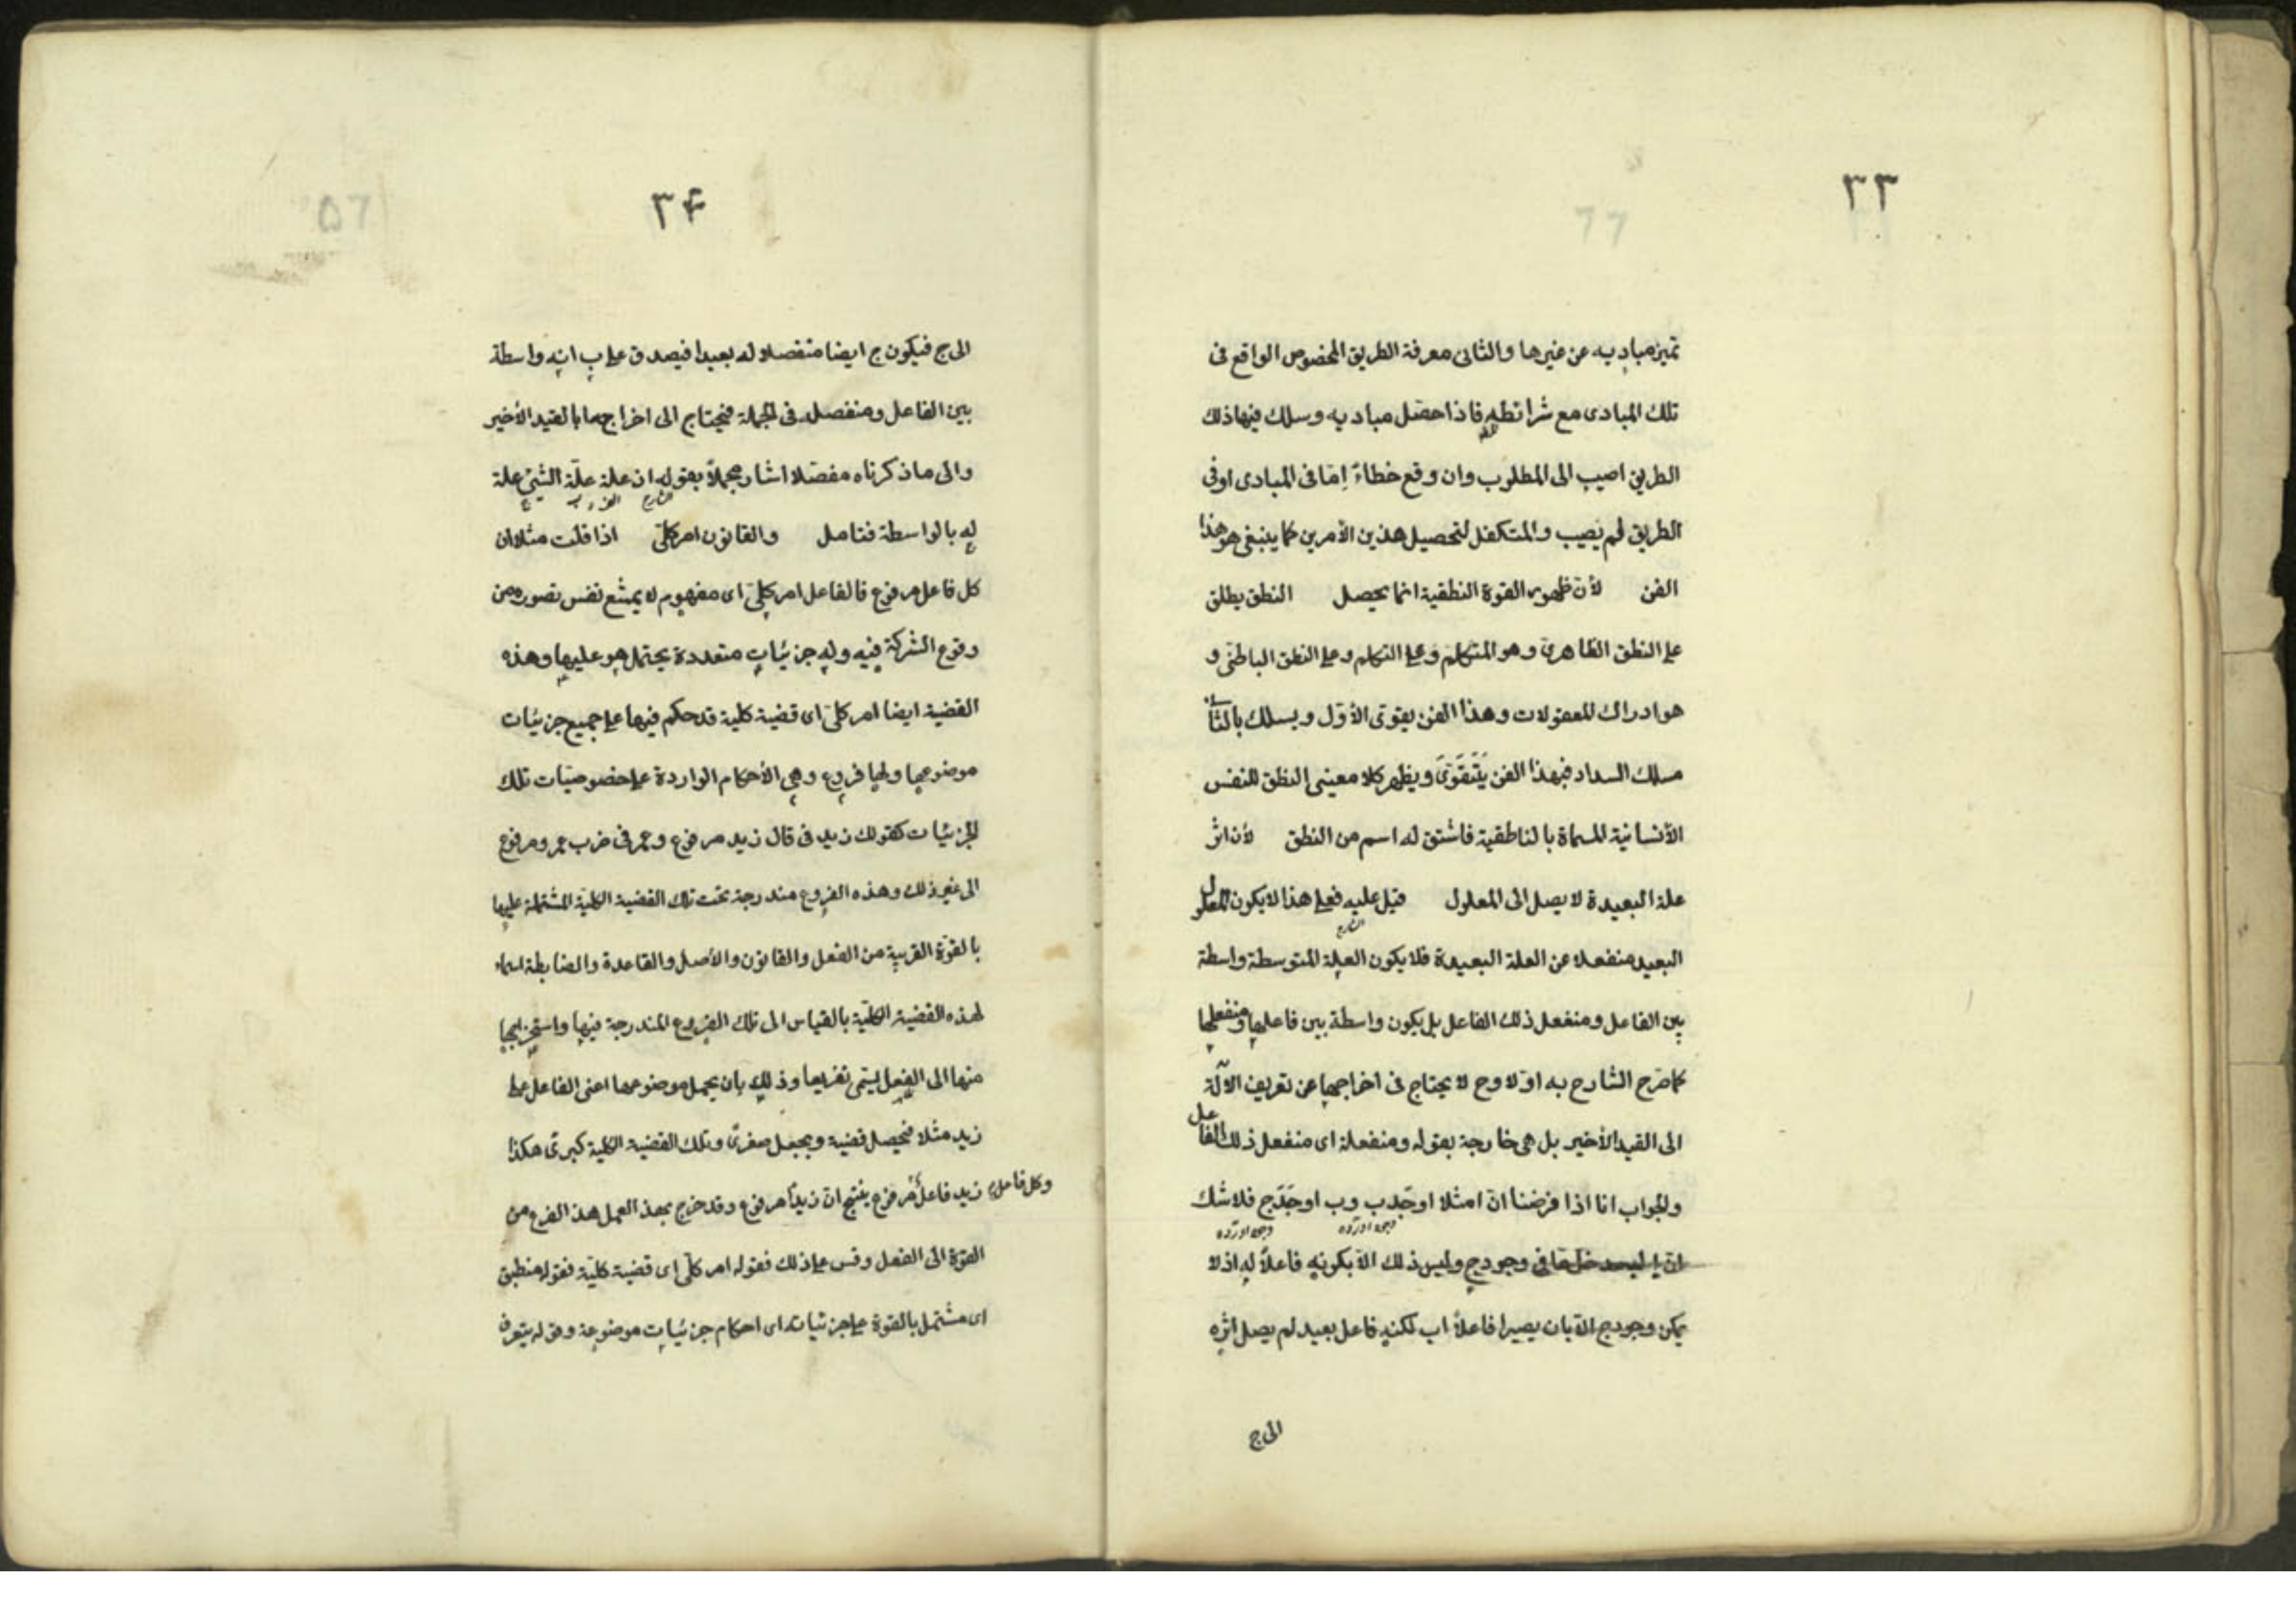 ٣٣
تميز مباديه عن غيرها والثانى معرفة الطريق المخصوص الواقع فى
تلك المبادى مع شرائطه فاذا حصل مباديه وسلك فيها ذلك
الطريق اصيب الى المطلوب وان وقع خطاءٌ اِمّا فى المبادى او فى
الطريق لم يصيب والمتكفل لتحصيل هذين الأمرين كما ينبغى هو هذا
الفن لأن ظهور القوة النطقية انما يحصل النطق يطلق
على النطق الظاهرىّ وهو المتكلم وعلى التكلم وعلى النطق الباطنى و
هو ادراك المعقولات وهذا الفن يقوى الأوّل ويسلك بالثانى
مسلك السداد فبهذا الفن يَتَقَوّىَ ويظهر كلا معنيى النطق للنفس
الأنسانية المسماة بالناطقية فاشتق له اسم من النطق لأن اثر
علة البعيدة لا يصل الى المعلول قيل عليه فعلى هذا لا يكون المعلول
الشارح
البعيد منفعلا عن العلة البعيدة فلا يكون العلة المتوسطة واسطة
بين الفاعل ومنفعل ذلك الفاعل بل يكون واسطة بين فاعلها ومنفعلها
كما صرح الشارح به اوّلا وح لا يحتاج فى اخراجها عن تعريف الآلة
الى القيد الأخير بل هى خارجة بقوله ومنفعلة اى منفعل ذلك الفاعل
والجواب انا اذا فرضنا انّ ا مثلا اوجَدَ ب وب اوجَدَ ج فلا شك
انّ فى وجود ج وليس ذلك الّا بكونه فاعلاً له اذ لا
يمكن وجود ج الّا بان يصير ا فاعلاً ا ب لكنه فاعل بعيد لم يصل اثره
الى ج
٣۴
الى ج فيكون ج ايضا منفصلا له بعيدا فيصدق على ب انه واسطة
بين الفاعل ومنفصله فى الجملة فيحتاج الى اخراجها بالقيد الأخير
والى ما ذكرناه مفصّلا اشار مجملاً بقوله ان علة علّة الشئ علة
الشارح
له بالواسطة فتامل والقانون امر كلّى اذا قلت مثلا ان
كل فاعل مرفوع فالفاعل امر كلىّ اى مفهوم لا يمتنع نفس تصوره من
وقوع الشركة فيه وله جزئيات متعددة يحتمل هو عليها وهذه
القضية ايضا امر كلىّ اى قضية كلية قد حكم فيها على جميع جزئيات
موضوعها ولها فروع وهى الأحكام الواردة على خصوصيّات تلك
الجزئيات كقولك زيد فى قال زيد مرفوع وعمر فى ضرب عمرو مرفوع
الى غير ذلك وهذه الفروع مندرجة تحت تلك القضية الكلية المشتملة عليها
بالقوّة القريبة من الفعل والقانون والأصل والقاعدة والضابطة اسماء
لهذه القضية الكلّية بالقياس الى تلك الفروع المندرجة فيها واستخراجها
منها الى الفعل يسمّى تفريعا وذلك بان يحمل موضوعها اعنى الفاعل على
زيد مثلا فيحصل قضية ويجعل صغرىً وتلك القضية الكلية كبرىً هكذا
زيد فاعلٌ وكل فاعل مرفوع ينتج انّ زيداً مرفوع وقد خرج بهذ العمل هذ الفرع من
القوّة الى الفعل وقس على ذلك فقوله امر كلّى اى قضية كلّية فقوله منطبق
اى مشتمل بالقوة على جزئياته اى احكام جزئيات موضوعه وقوله يتعرف